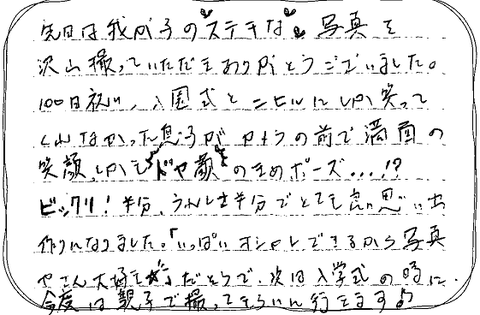 先日は我が子のステキな写真を
沢山撮っていただきありがとうございました。
100日祝い、入園式とニヒルにしか笑って
くれなかった息子がカメラの前で満面の
笑顔、しかも ドヤ顔 のきめポーズ...!?
ビックリ!半分、うれしさ半分でとても良い思い出
作りになりました。「いっぱいオシャレできるから写真
やさん大好き」だそうで、次は入学式の時に、
今度は親子で撮ってもらいに行きます♪